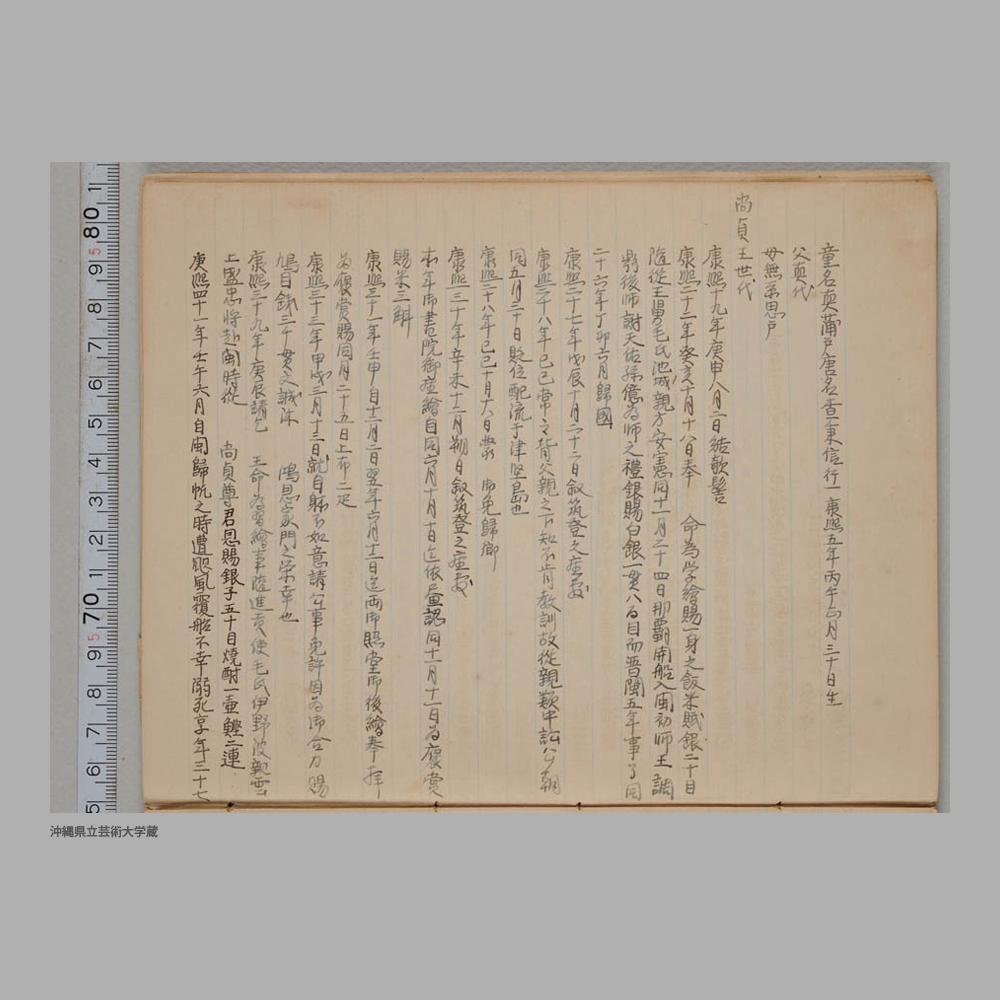 童名真蒲戸唐名査秉信行一康熙五年丙午六月三十日生
父真代
母無系思戸
尚貞王世代
康熙十九年庚申八月二日結欹髻
康熙二十二年癸亥十月十八日奉 命為学繪賜一身之飯米賦銀二十目
隨從王舅毛氏池城親方安憲同十一月二十四日那覇開船入閩初師王調
鼎後師謝天佑孫億為師之禮銀賜白銀一貫八百目而晋閩五年事了同
二十六年丁卯六月歸國
康熙二十七年戊辰十月二十二日叙筑登之座敷
康熙二十八年己巳常々背父親之下知不肯教訓故從親類中訟公朝
同五月三十日貶位配流于津堅島也
康熙二十八年己巳十月六日蒙 御免歸郷
康熙三十年辛未十二月朔日叙筑登之座敷
本年御書院御座繪自同六月十日迄依 同十一月十一日為褒賞
賜米三斛
康熙三十一年壬申自十一月二日翌年六月十二日迄両御照堂御後繪奉拝
為褒賞賜同月二十五日上布二疋
康熙三十三年甲戌三月十三日就自躰不如意請公事免許因為御合力賜
鳩目銭三十貫文誠沐 鴻恩家門之栄幸也
康熙三十九年庚辰請乞 王命為習繪事隨進貢使毛氏伊野波親雲
上盛忠将赴閩時從 尚貞尊君恩賜銀子五十目焼酎一壷鰹二連
康熙四十一年壬午六月自閩歸帆之時遭颶風覆船不幸溺死享年三十七
80 1
70 1
9 8 7 6 5 4 3 2 1
沖縄県立芸術大学蔵